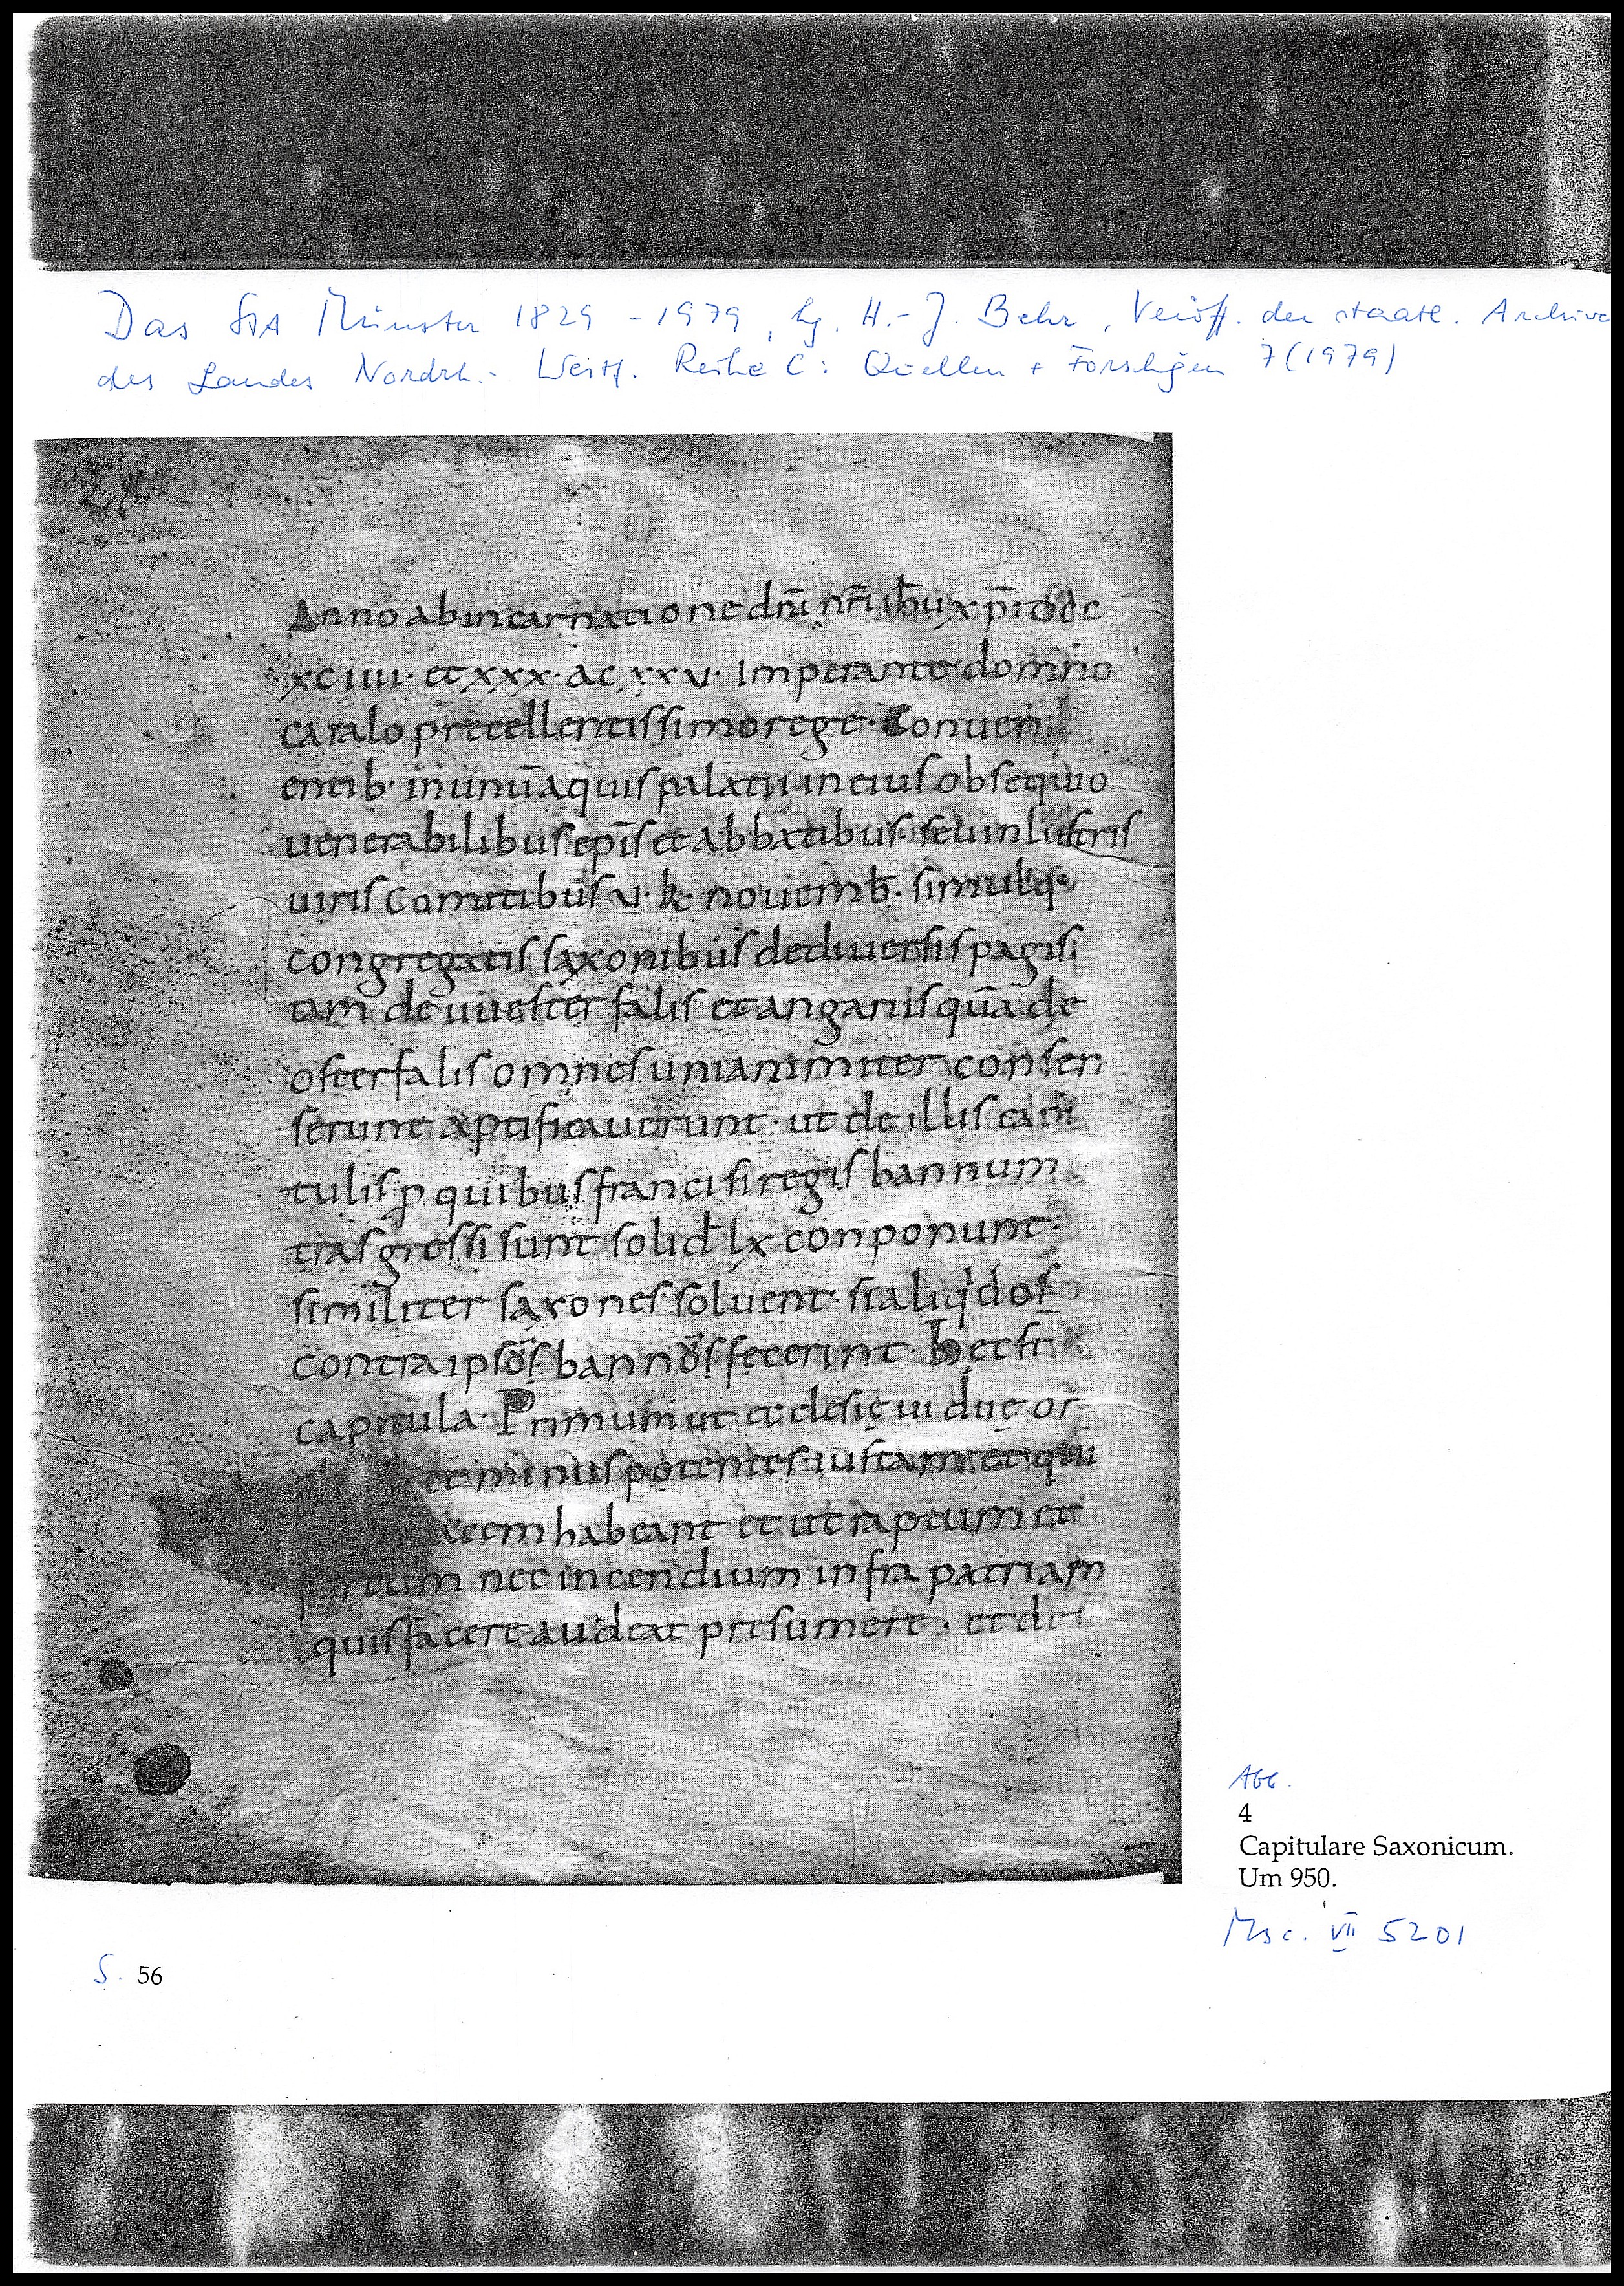 Das StA Münster 1829 - 1979, hg. H.-J. Behr, Veröff. der staatl. Archive
des Landes Nordrh.- Westf. Reihe C: Quellen + Forschgen 7 (1979)
Anno ab incarnatione dnī nrī ihū xpī dcc
xc uii· et xxx· ac xxv· Imperante domno
caralo precellentissimo rege· Conueni
entib· in unū aquis palatii in eius obsequio
uenerabilibus epīs et abbatibus· seu inlustris
uiris comitibus v· k· nouemb̄· simulq;
congregatis saxonibus de diuersis pagis
tam de uuester falis et angariis quā de
osterfalis omnes unianimiter consen
serunt aptificauerunt· ut de illis capi
tulis p quibus franci si regis bannum
trasgressi sunt solid̄ lx conponunt·
similiter saxones soluent· si aliqdos
contra ipsos bannos fecerint· hec st
capitula· Primum ut ecclesię uiduę or
et minus potentes· iustam et qui
acem habeant et ut raptum et
eum nec incendium infra patriam
quis facere audeat presumere· et de
Abb.
4
Capitulare Saxonicum.
Um 950.
Msc. VII 5201
S. 56